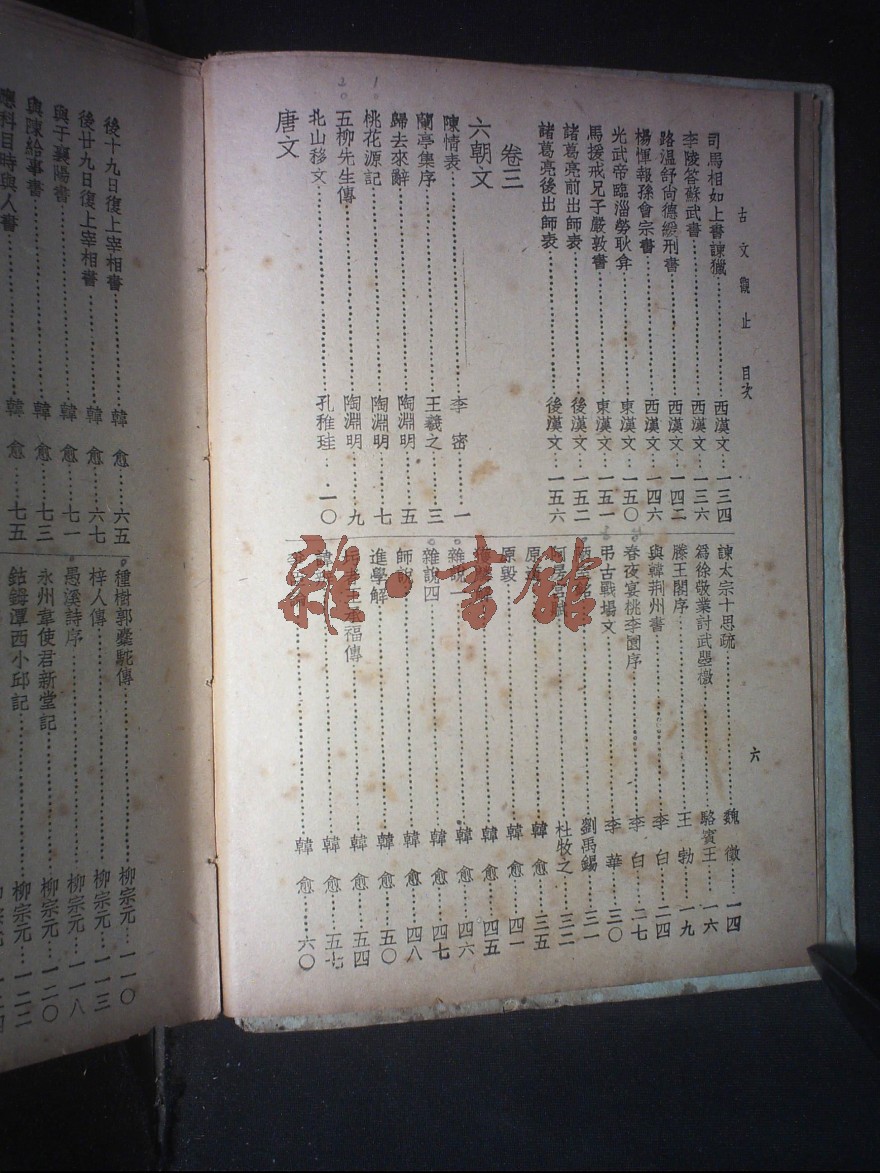 古文觀止 目次 六
司馬相如上書諫獵 西漢文 一三四
李陵答蘇武書 西漢文 一三六
路溫舒尚德緩刑書 西漢文 一四二
楊惲報孫會宗書 西漢文 一四六
光武帝臨淄勞耿弇 東漢文 一五〇
馬援戒兄子嚴敦書 東漢文 一五一
諸葛亮前出師表 後漢文 一五二
諸葛亮後出師表 後漢文 一五六
卷三
六朝文
陳情表 李密 一
蘭亭集序 王羲之 三
歸去來辭 陶淵明 五
桃花源記 陶淵明 七
五柳先生傳 陶淵明 九
北山移文 孔稚珪 一〇
唐文
諫太宗十思疏 魏徵 一四
爲徐敬業討武曌檄 駱賓王 一六
滕王閣序 王勃 一九
與韓荆州書 李白 二四
春夜宴桃李園序 李白 二七
弔古戰場文 李華 三〇
劉禹錫 三一
杜牧之 三二
原 韓愈 三五
原毀 韓愈 四一
韓愈 四五
雜說一 韓愈 四六
雜說四 韓愈 四七
師說 韓愈 四八
進學解 韓愈 五〇
承福傳 韓愈 五四
韓愈 五七
韓愈 六〇
後十九日復上宰相書 韓愈 六五
後廿九日復上宰相書 韓愈 六七
與于襄陽書 韓愈 七一
與陳給事書 韓愈 七三
應科目時與人書 韓愈 七五
種樹郭橐駝傳 柳宗元 一一〇
梓人傳 柳宗元 一一三
愚溪詩序 柳宗元 一一八
永州韋使君新堂記 柳宗元 一二〇
鈷鉧潭西小邱記 柳宗元 一二二
雜·書館